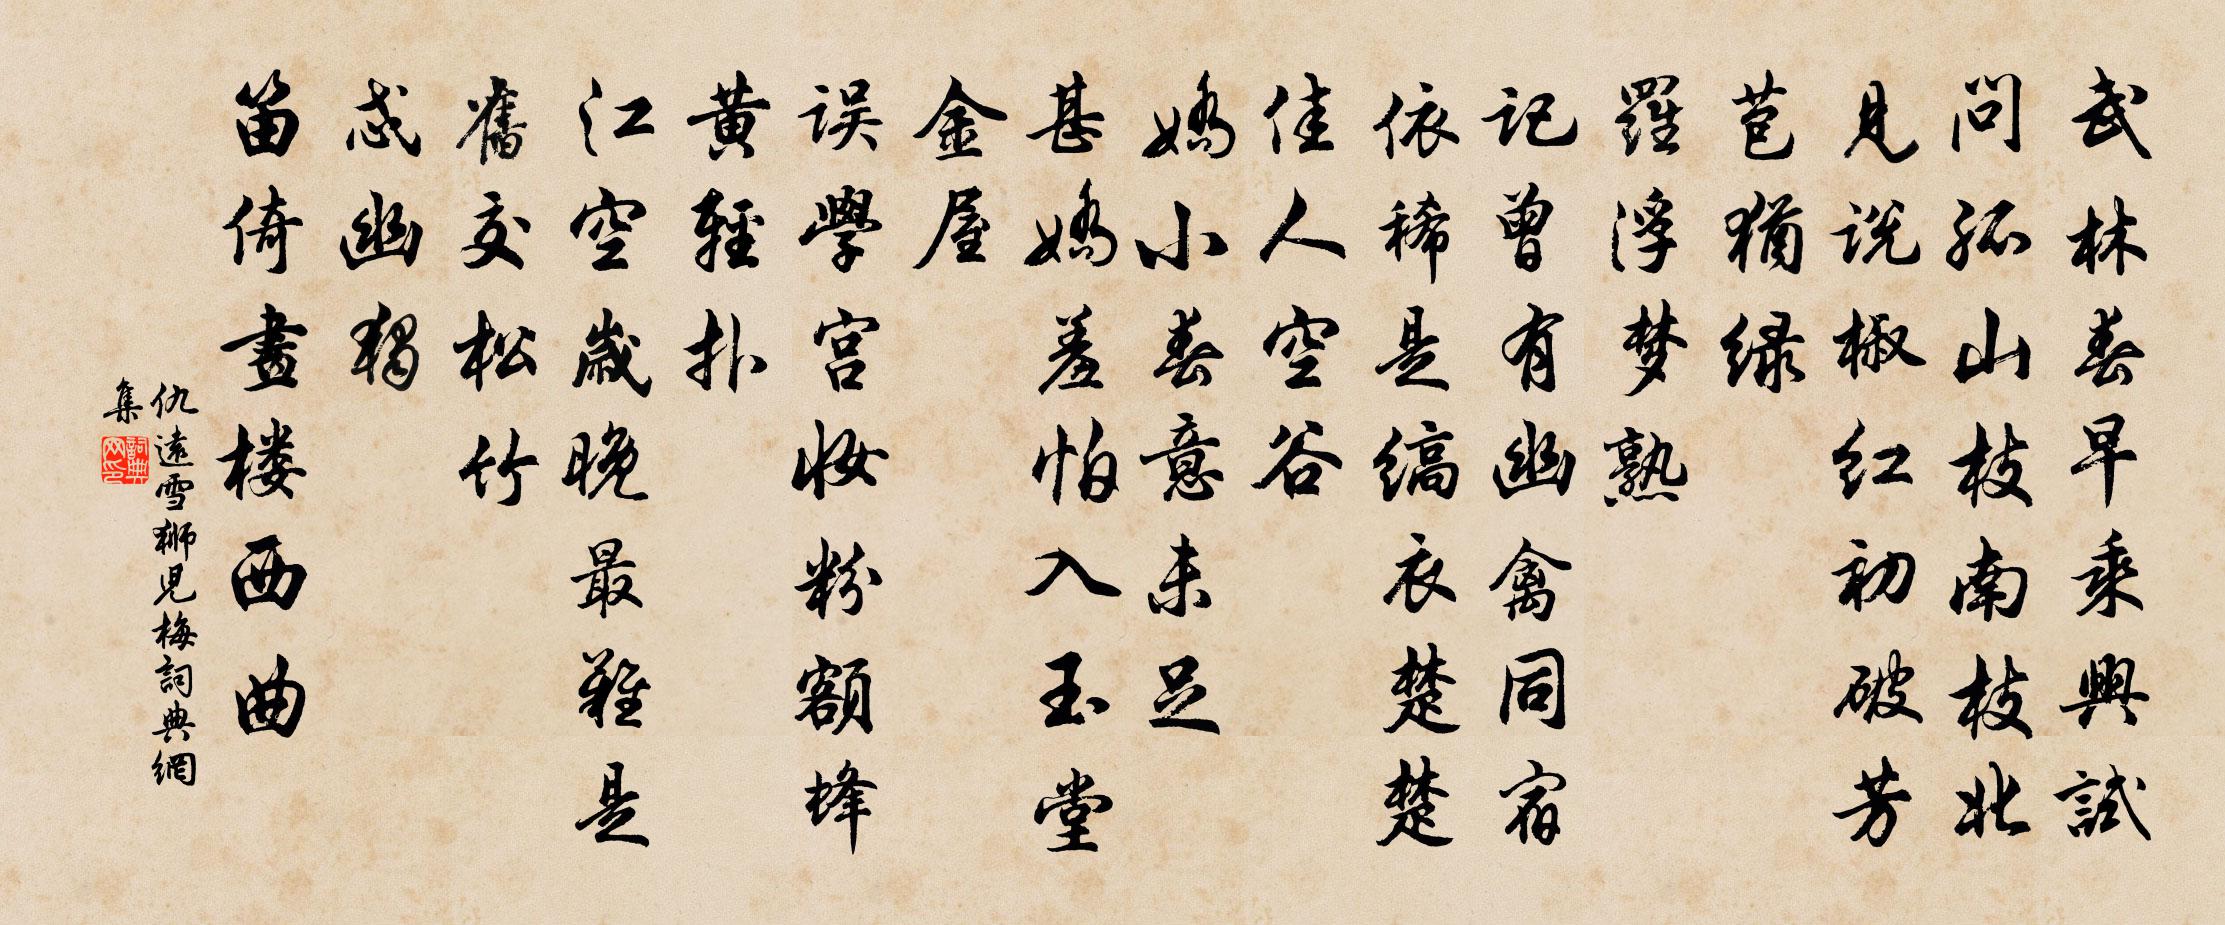 武林春早乘興試
问孤山枝南枝北
見说椒红初破芳
苞猶绿
羅浮梦熟
记曾有幽禽同宿
依稀是缟衣楚楚
佳人空谷
嬌小春意未足
甚嬌羞怕入玉堂
金屋
误學宫妆粉额蜂
黄輕扑
江空歲晚最難是
舊交松竹
忒幽獨
笛倚畫楼西曲
仇遠雪獅児梅詞典網
集
詞典網印